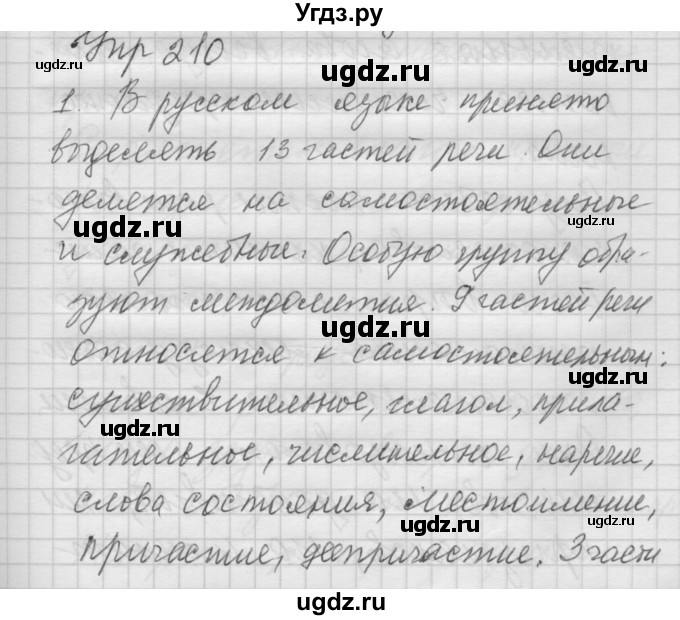 Угдз.ру
Упр 210
ugdz.ru
ugdz.ru
ugdz.ru
1. В русском языке принято
выделять 13 частей речи. Они
ugdz.ru
делятся на самостоятельные
ugdz.ru
ugdz.ru
и служебные. Особую группу обра-
зуют междометия. 9 частей речи
ugdz.ru
относятся к самостоятельным:
ugdz.ru
существительное, глагол, прила-
ugdz.ru
гательное, числительное, наречие,
слова состояния, местоимение,
ugdz.ru
ugdz.ru
причастие, деепричастие. 3 части
ugdz.ru
ugdz.ru